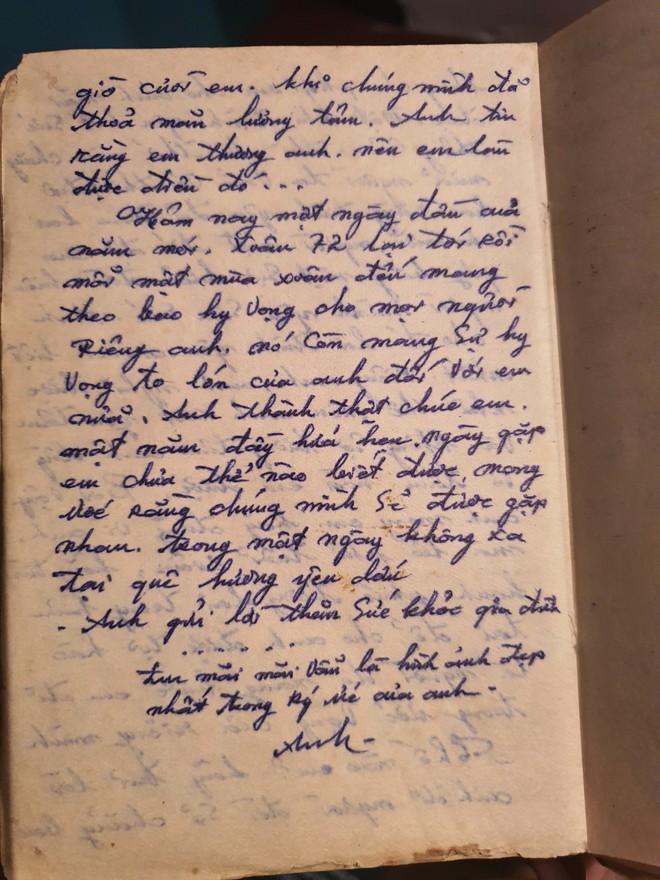 giờ cười em. khi chúng mình đã
thoả mãn lương tâm. Anh tin
rằng em thương anh. nên em làm
được điều đó...
Hôm nay một ngày đầu của
năm mới. Xuân 72 lại tới rồi
mỗi một mùa xuân đến mang
theo bao hy vọng cho mọi người
Riêng anh. nó còn mang sự hy
vọng to lớn của anh đối với em
nữa. Anh thành thật chúc em.
một năm đầy hứa hẹn. ngày gặp
em chưa thể nào biết được, mong
ước rằng chúng mình sẽ được gặp
nhau. trong một ngày không xa
tại quê hương yêu dấu
- Anh gửi lời thăm sức khỏe gia đình
.......
mãi mãi vẫn là hình ảnh đẹp
nhất trong ký ức của anh -
Anh -